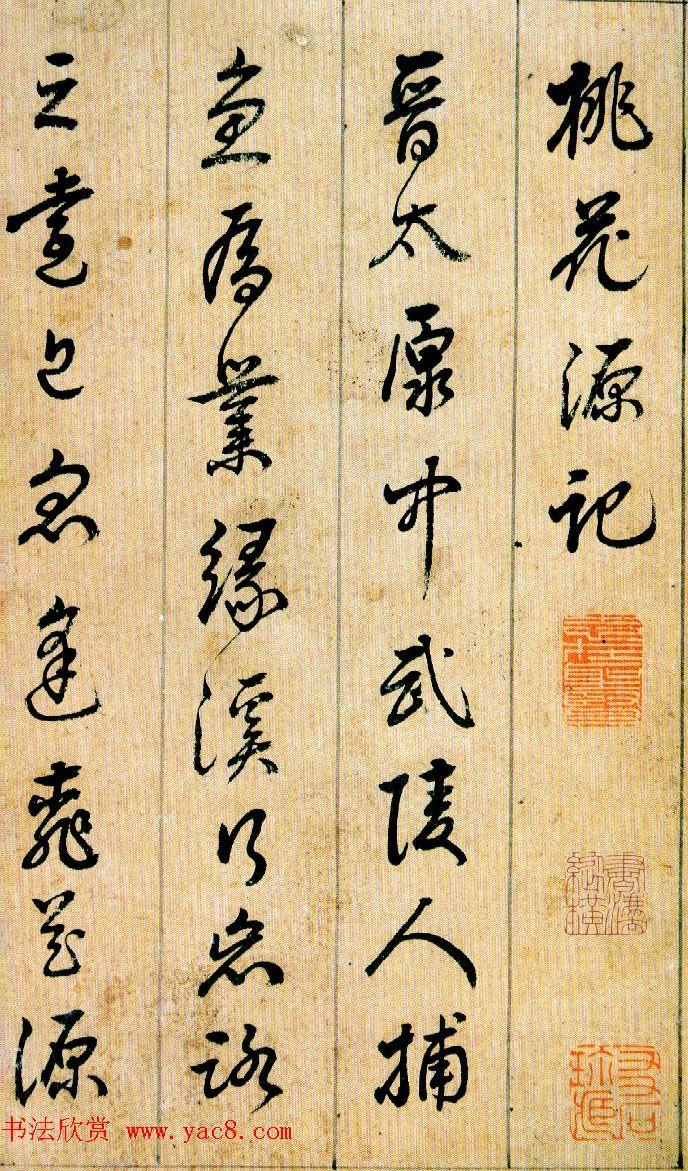 桃花源記
晉太原中武陵人捕
魚為業緣溪行忘路
之遠近忽逢桃花源
书法欣赏 www.yac8.com